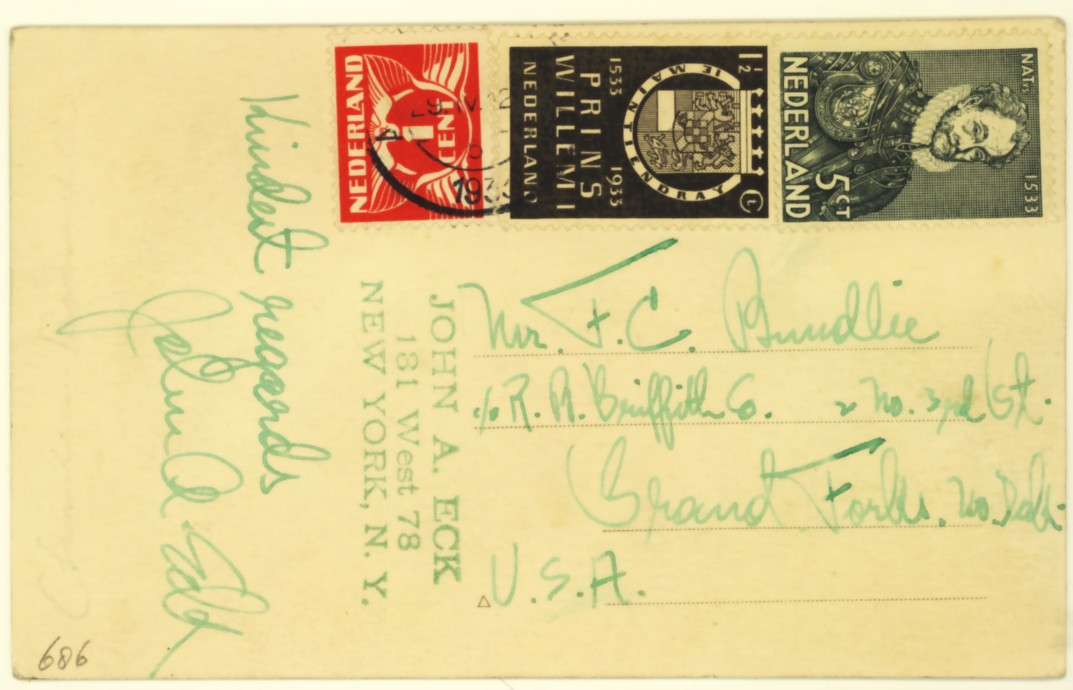 NEDERLAND
1
CENT
193
1533 1933
PRINS
WILLEM I
NEDERLAND
JE MAINTIENDRAY
1½ Ct
NEDERLAND
5 CT
1533
Kindest regards
John A. Eck
JOHN A. ECK
131 West 78
NEW YORK, N. Y.
Mr. F. C. Bundlie
c/o R. B. Griffith Co. 2 No. 3rd St.
Grand Forks, No. Dak.
U.S.A.
686